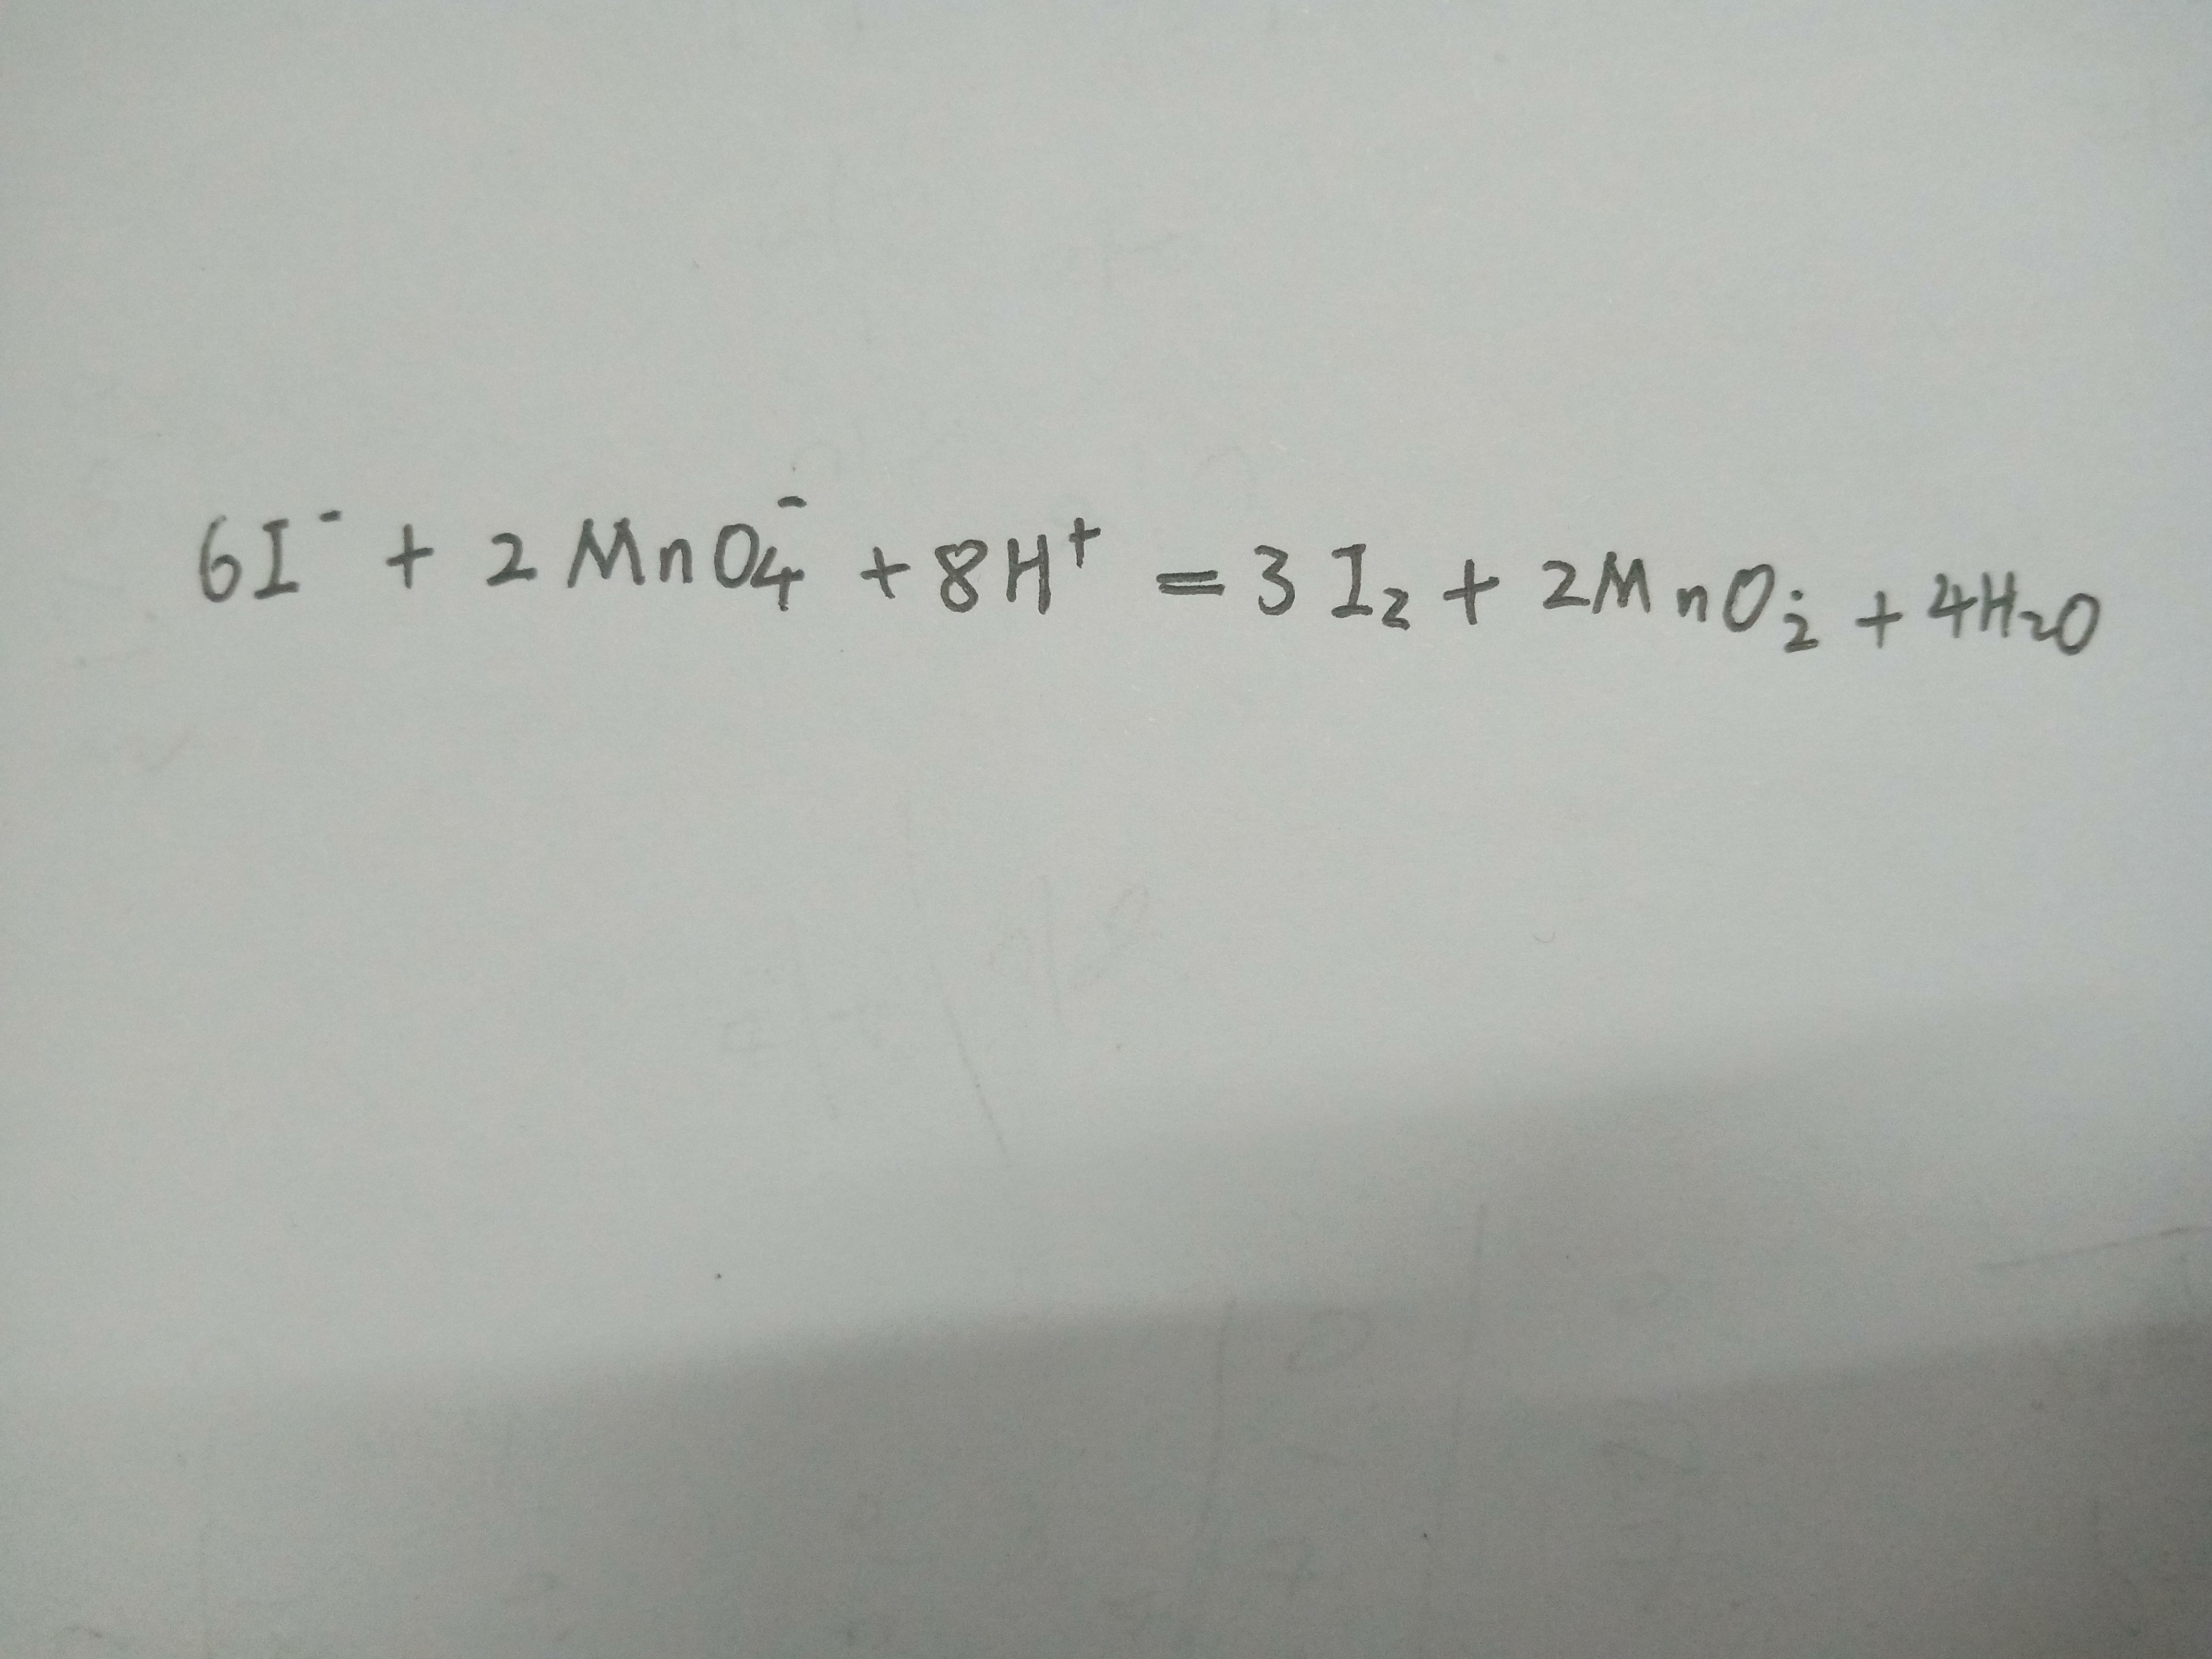 6I⁻ + 2MnO₄⁻ + 8H⁺ = 3I₂ + 2MnO₂ + 4H₂O